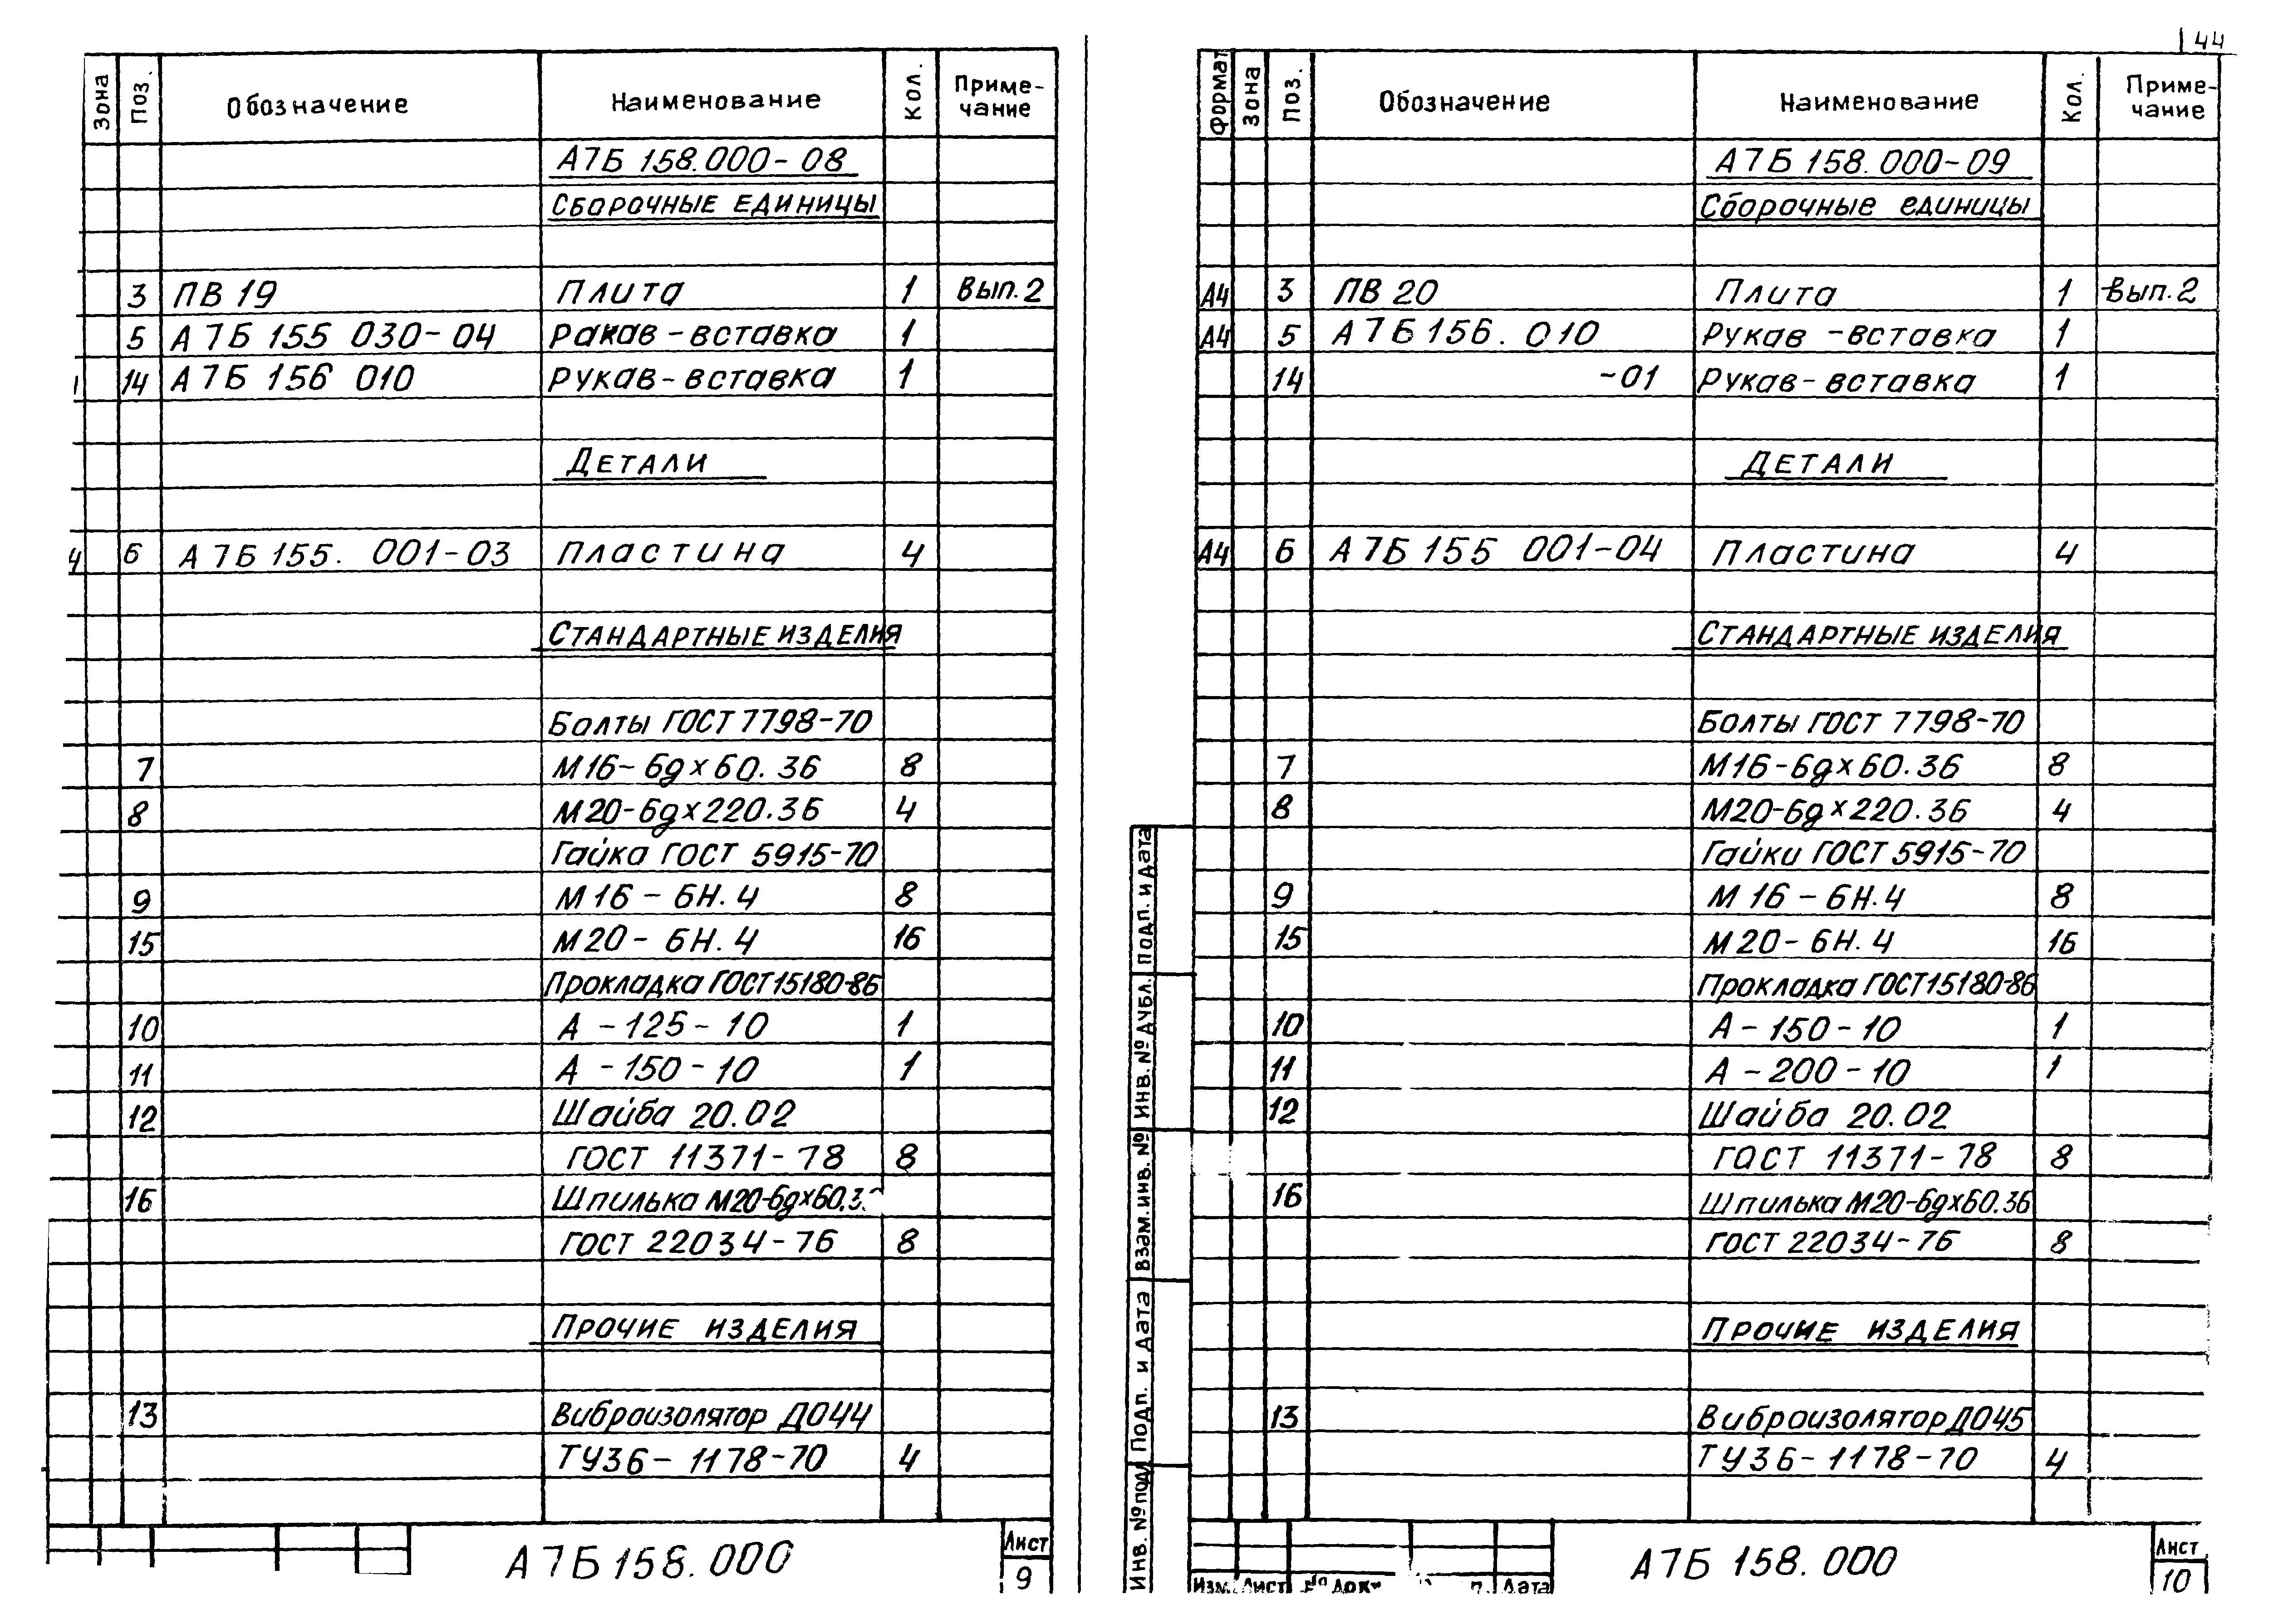 44
Зона Поз. Обозначение Наименование Кол. Приме-
чание
А7Б 158.000-08
Сборочные единицы
3 ПВ 19 Плита 1 Вып.2
5 А7Б 155 030-04 Рукав-вставка 1
14 А7Б 156 010 Рукав-вставка 1
Детали
4 6 А7Б 155. 001-03 Пластина 4
Стандартные изделия
Болты ГОСТ 7798-70
7 М16-6gх60.36 8
8 М20-6gх220.36 4
Гайка ГОСТ 5915-70
9 М16-6Н.4 8
15 М20-6Н.4 16
Прокладка ГОСТ15180-86
10 А-125-10 1
11 А-150-10 1
12 Шайба 20.02
ГОСТ 11371-78 8
16 Шпилька М20-6gх60.3
ГОСТ 22034-76 8
Прочие изделия
13 Виброизолятор ДО44
ТУ36-1178-70 4
А7Б 158.000
Лист
9
Формат Зона Поз. Обозначение Наименование Кол. Приме-
чание
А7Б 158.000-09
Сборочные единицы
А4 3 ПВ 20 Плита 1 Вып.2
А4 5 А7Б 156. 010 Рукав-вставка 1
14 -01 Рукав-вставка 1
Детали
А4 6 А7Б 155 001-04 Пластина 4
Стандартные изделия
Болты ГОСТ 7798-70
7 М16-6gх60.36 8
8 М20-6gх220.36 4
Гайки ГОСТ 5915-70
9 М16-6Н.4 8
15 М20-6Н.4 16
Прокладка ГОСТ15180-86
10 А-150-10 1
11 А-200-10 1
12 Шайба 20.02
ГОСТ 11371-78 8
16 Шпилька М20-6gх60.36
ГОСТ 22034-76 8
Прочие изделия
13 Виброизолятор ДО45
ТУ36-1178-70 4
Подп. и дата
Инв. № дубл.
Взам. инв. №
Подп. и дата
Инв. № подл
Изм. Лист № док Дата
А7Б 158.000
Лист
10